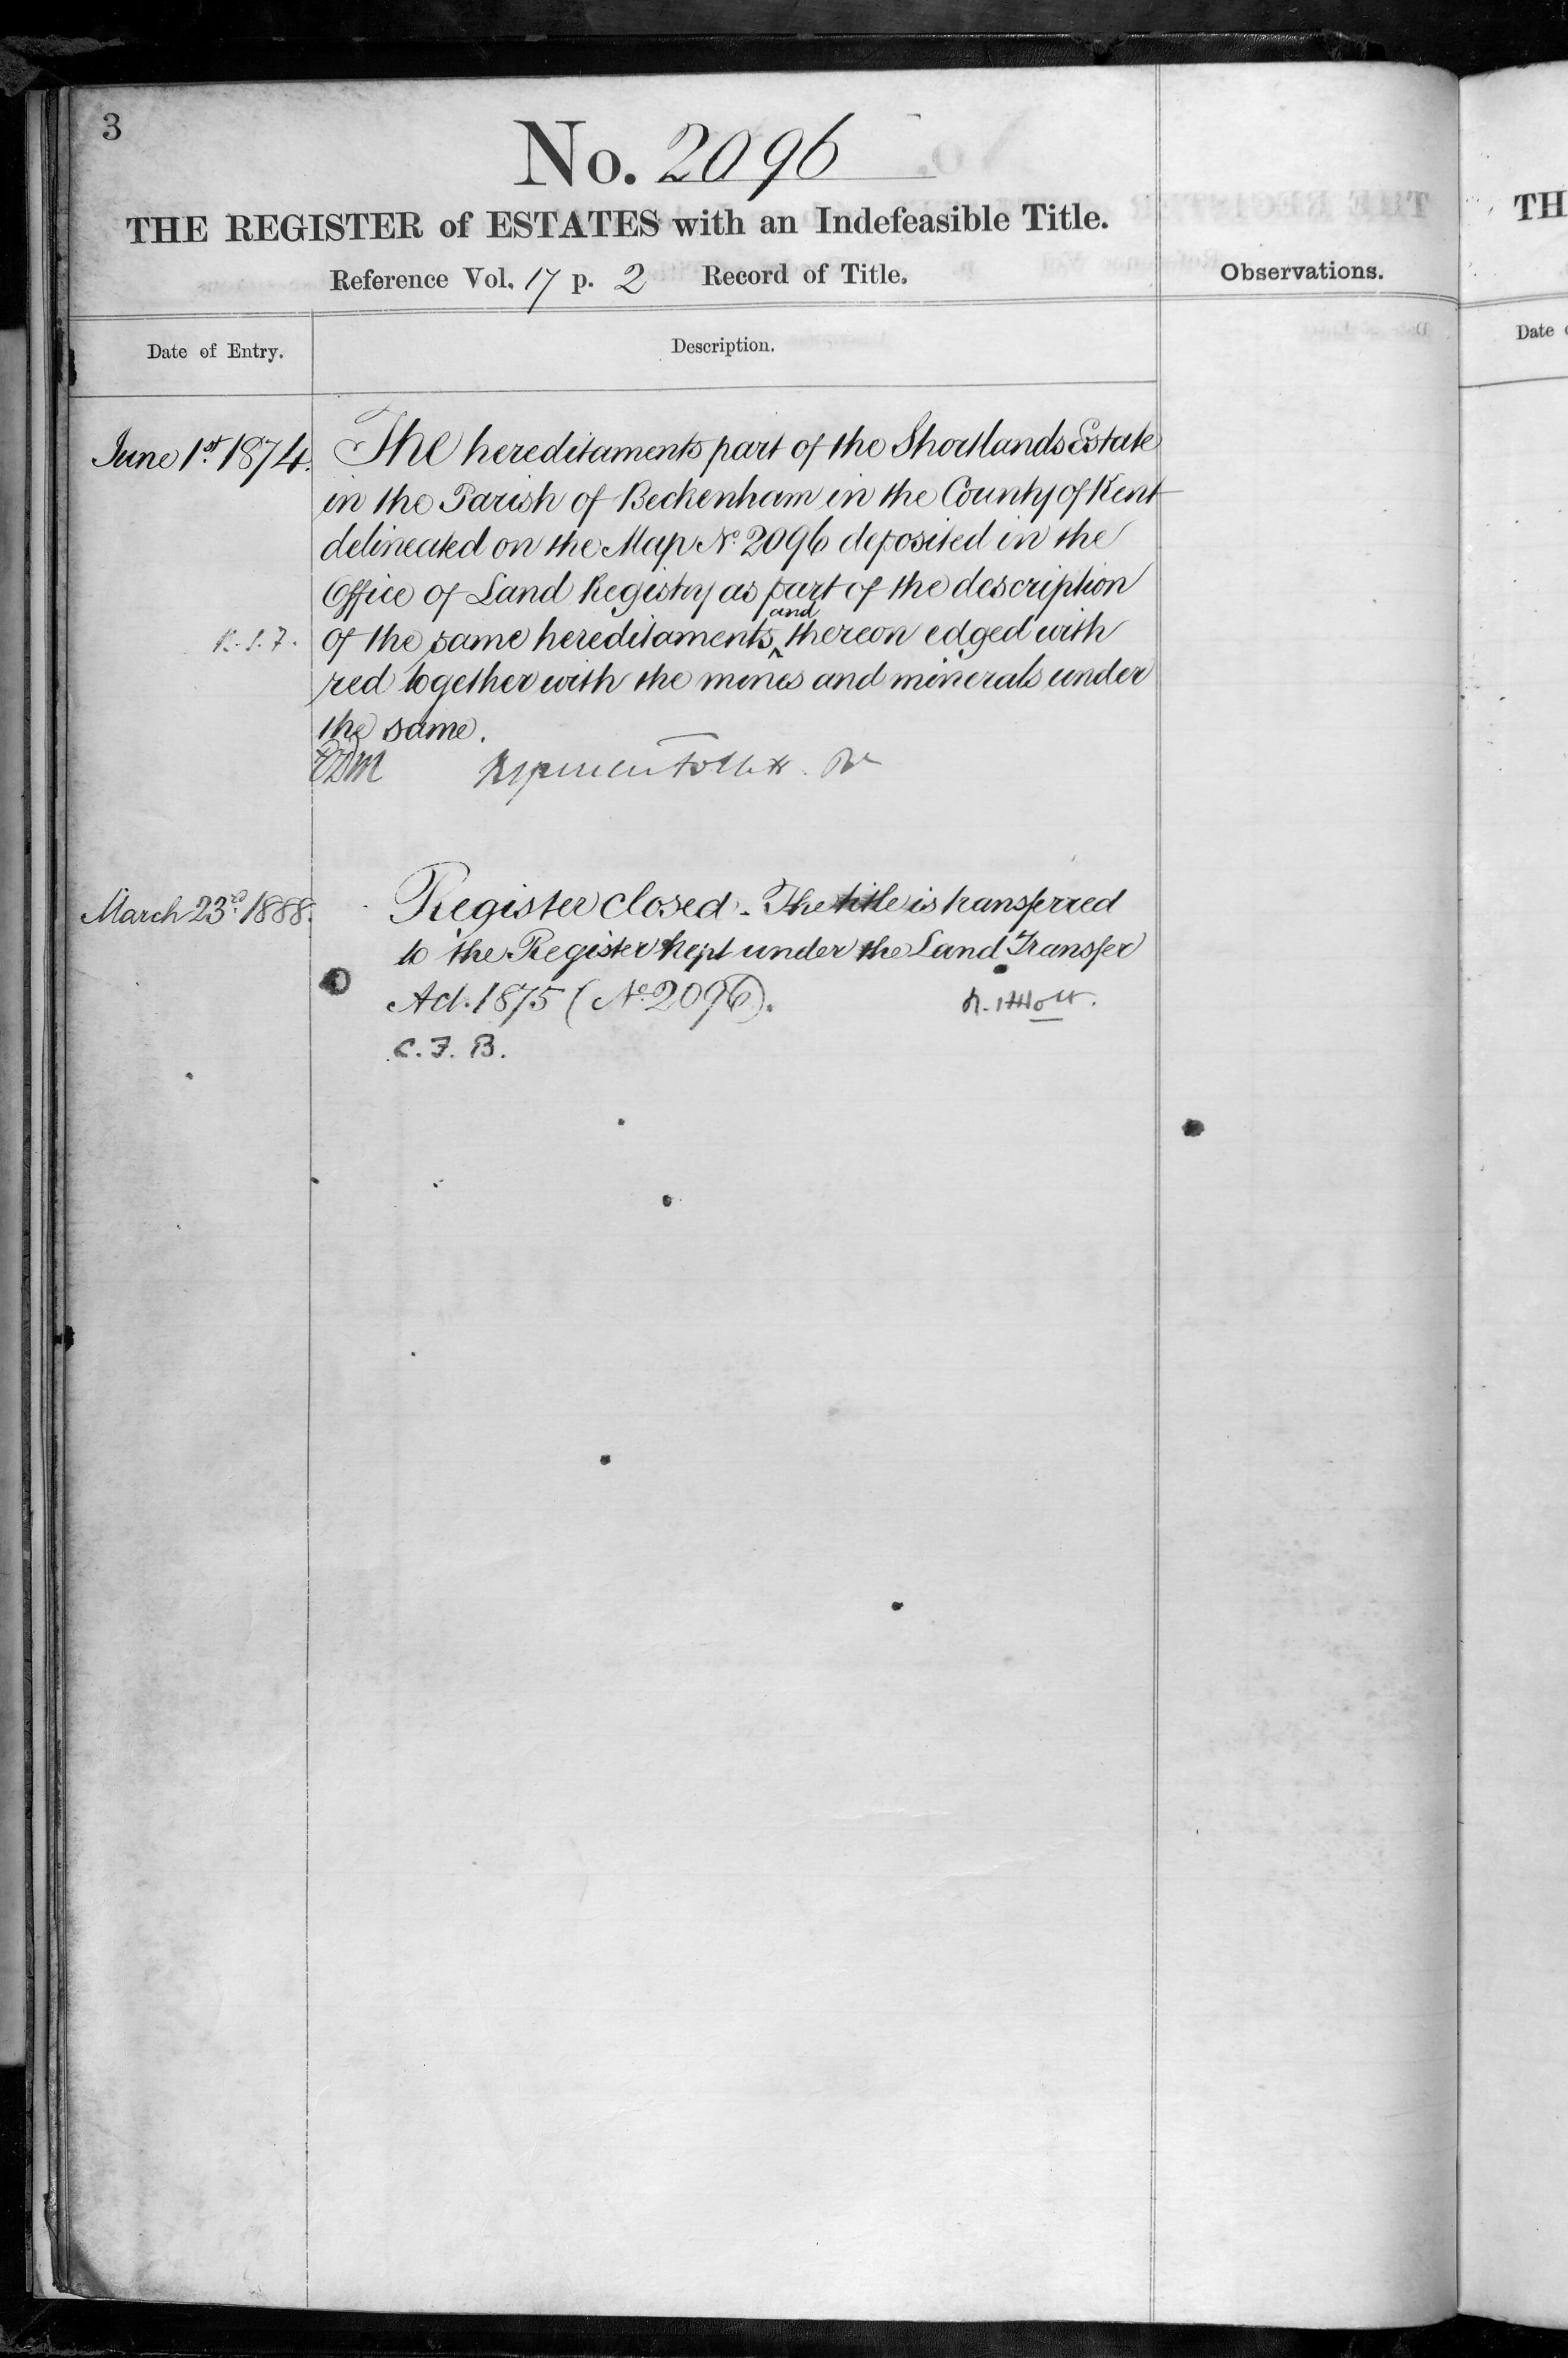 3
No. 2096
THE REGISTER of ESTATES with an Indefeasible Title.
Reference Vol. 17 p. 2 Record of Title.
Observations.
Date of Entry.
Description.
June 1st 1874.
The hereditaments part of the Shortlands Estate
in the Parish of Beckenham in the County of Kent
delineated on the Map No. 2096 deposited in the
Office of Land Registry as part of the description
of the same hereditaments and thereon edged with
red together with the mines and minerals under
the same.
March 23d 1888.
Register closed. The title is transferred
to the Register kept under the Land Transfer
Act. 1875 (No. 2096).
R. Holt.
C. F. B.
TH
Date